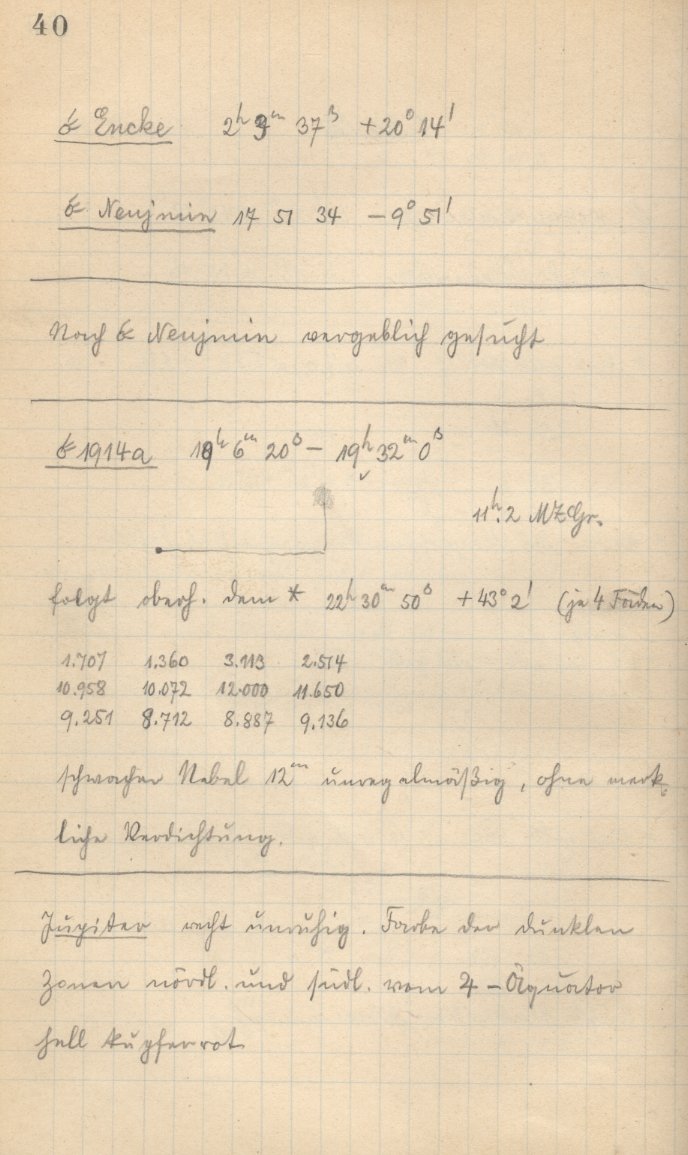 40
☄ Encke 2ʰ 3ᵐ 37ˢ +20° 14'
☄ Neujmin 17 51 34 −9° 51'
Nach ☄ Neujmin vergeblich gesucht
☄ 1914a 19ʰ 6ᵐ 20ˢ − 19ʰ 32ᵐ 0ˢ
11ʰ.2 MZGr.
folgt oberh. dem * 22ʰ 30ᵐ 50ˢ +43° 2' (je 4 Fäden)
1.707 1.360 3.113 2.514
10.958 10.072 12.000 11.650
9.251 8.712 8.887 9.136
schwacher Nebel 12ᵐ unregelmäßig, ohne merk-
liche Verdichtung.
Jupiter recht unruhig. Farbe der dunklen
Zonen nördl. und südl. vom ♃-Äquator
hell kupferrot